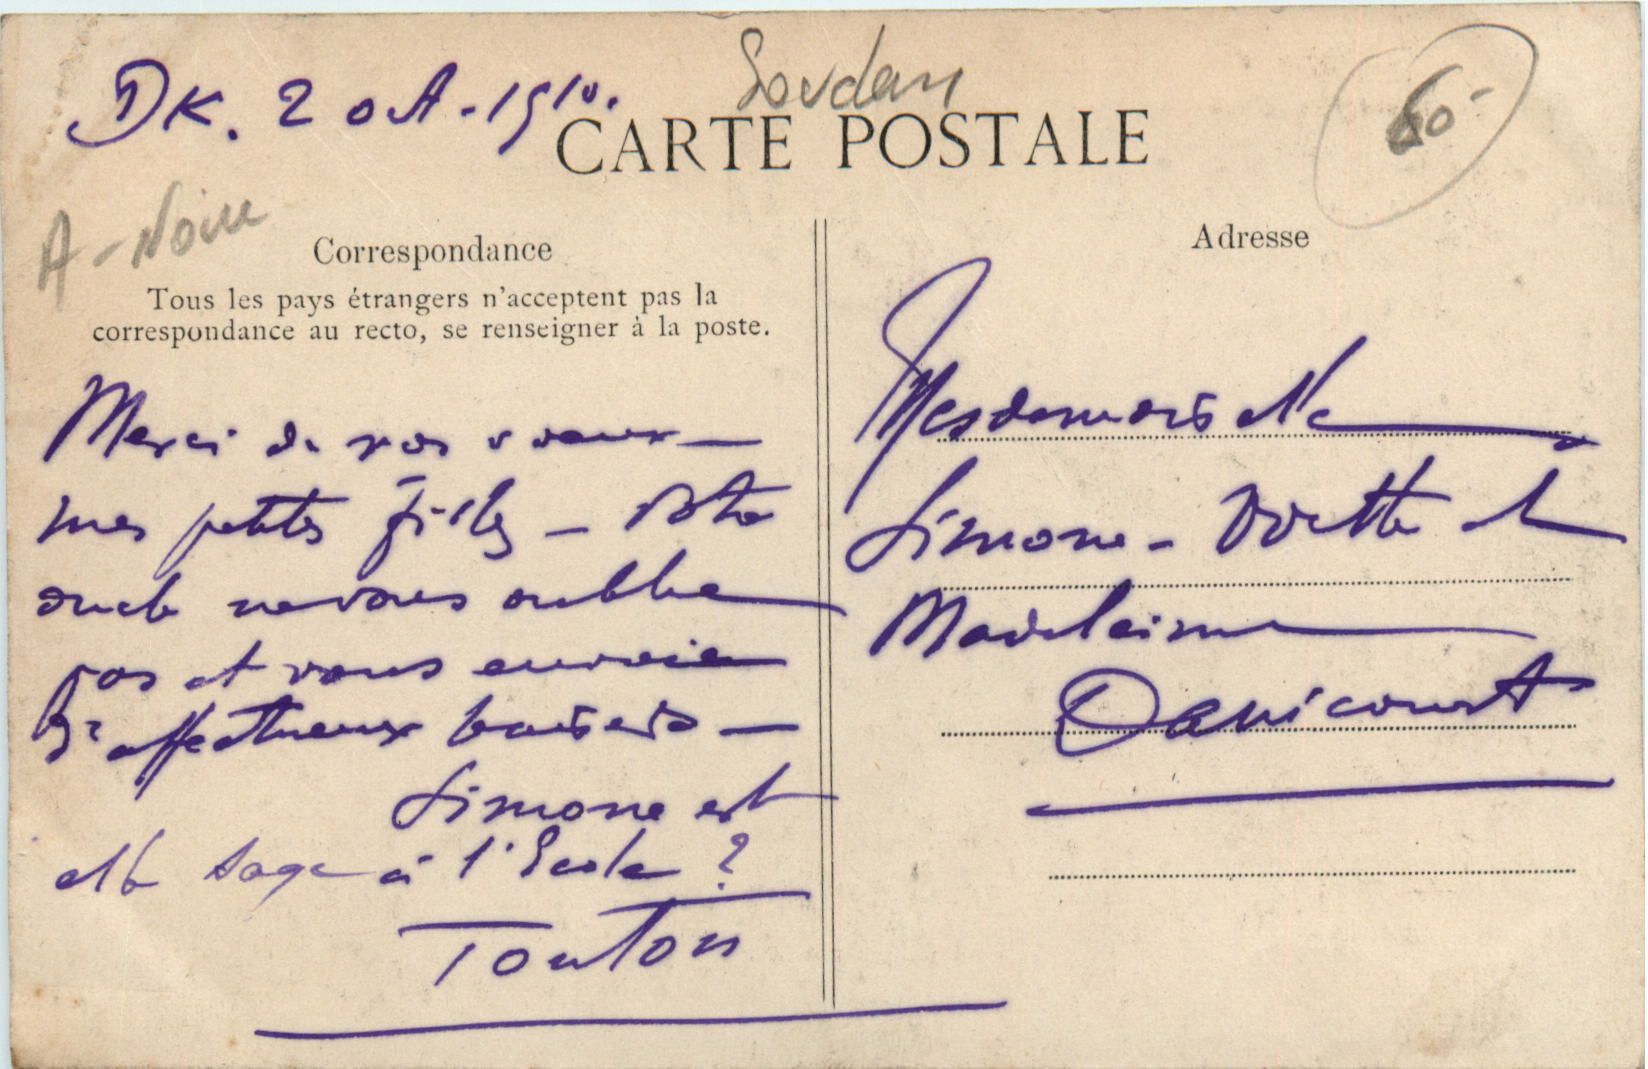 DK. 2 oct - 1910.
Soudan
60-
CARTE POSTALE
A-Noire
Correspondance
Tous les pays étrangers n'acceptent pas la
correspondance au recto, se renseigner à la poste.
Merci de vos voeux —
mes petites filles — Votre
oncle ne vous oublie
pas et vous envoie
d'affectueux baisers —
Simone est
elle sage à l'Ecole ?
Tonton
Adresse
Mesdemoiselle
Simone - Odette et
Madeleine
Davicourt